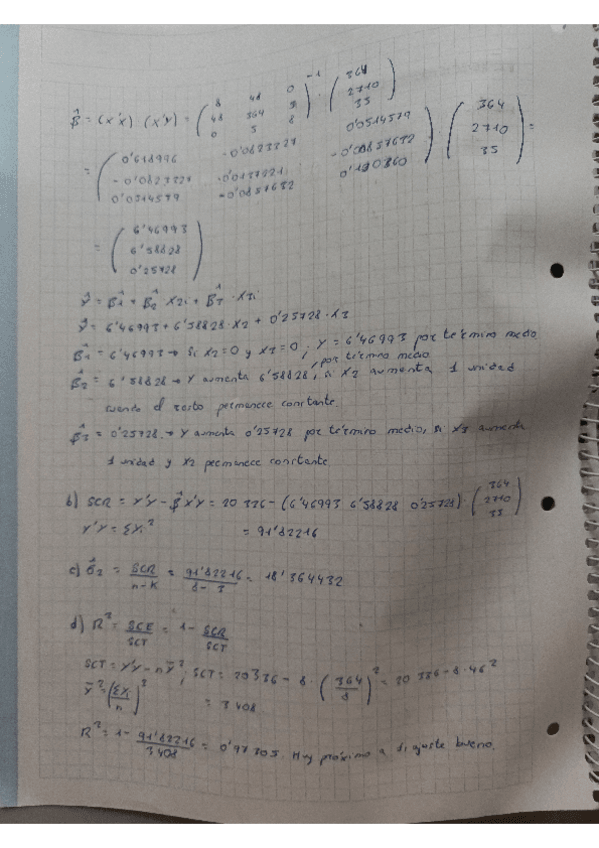 β̂ = (X'X)⁻¹ (X'Y) = ( 8 48 0 ; 48 364 5 ; 0 5 8 )⁻¹ · ( 364 ; 2710 ; 35 )
= ( 0'618996 -0'0823327 0'0514579 ; -0'0823327 0'0137221 -0'0857632 ; 0'0514579 -0'0857632 0'130360 ) · ( 364 ; 2710 ; 35 ) =
= ( 6'46993 ; 6'58828 ; 0'25728 )
Ŷ = β̂1 + β̂2 X2i + β̂3 · X3i
Ŷ = 6'46993 + 6'58828 · X2 + 0'25728 · X3
β̂1 = 6'46993 → Si X2=0 y X3=0, Y = 6'46993 por término medio
β̂2 = 6'58828 → Y aumenta 6'58828, por término medio, si X2 aumenta 1 unidad
cuando el resto permanece constante.
β̂3 = 0'25728 → Y aumenta 0'25728 por término medio, si X3 aumenta
1 unidad y X2 permanece constante
b) SCR = Y'Y - β̂'X'Y = 20 336 - (6'46993 6'58828 0'25728) · ( 364 ; 2710 ; 35 )
Y'Y = ΣYi² = 91'82216
c) σ̂2 = SCR / n-k = 91'82216 / 8-3 = 18'364432
d) R² = SCE / SCT = 1 - SCR / SCT
SCT = Y'Y - nȲ², SCT = 20336 - 8 · (364 / 8)² = 20 336 - 8·46²
Ȳ² = (ΣYi / n)² = 3 408
R² = 1 - 91'82216 / 3408 = 0'97305. Muy próximo a 1, ajuste bueno.